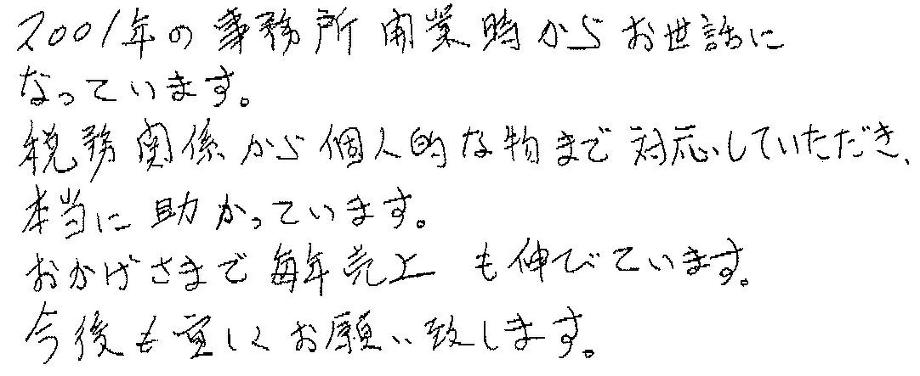 2001年の事務所開業時からお世話に
なっています。
税務関係から個人的な物まで対応していただき、
本当に助かっています。
おかげさまで毎年売上も伸びています。
今後も宜しくお願い致します。